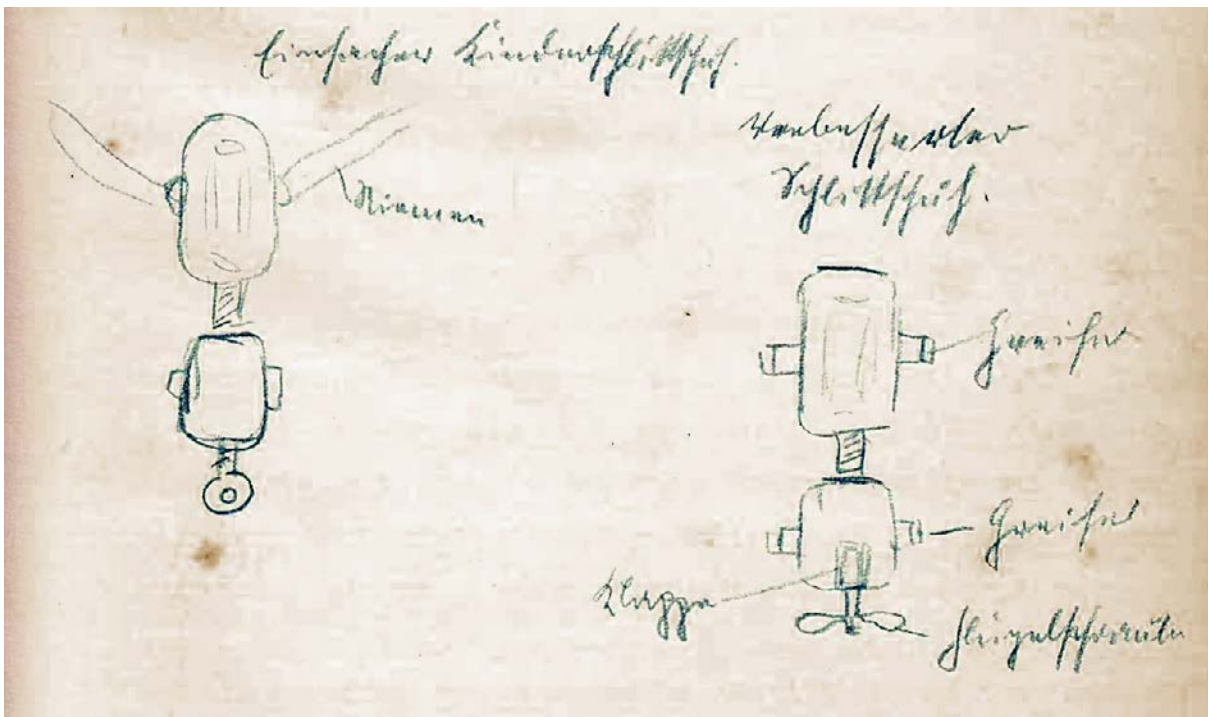 Einfacher Kinderschlittschuh.
Riemen
Verbesserter
Schlittschuh.
Greifer
Greifer
Klappe
Flügelschraube